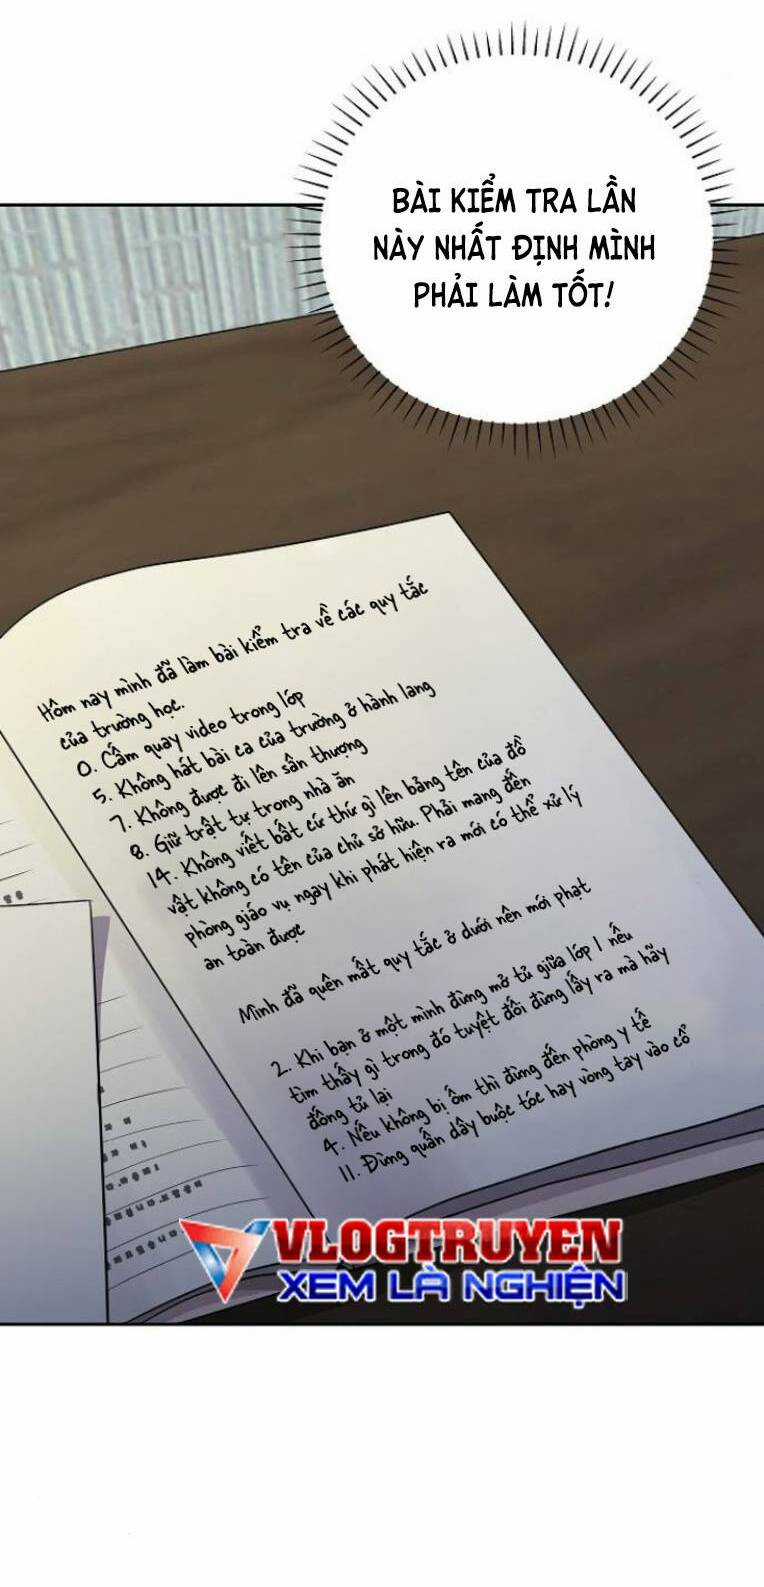 BÀI KIỂM TRA LẦN
NÀY NHẤT ĐỊNH MÌNH
PHẢI LÀM TỐT!
Hôm nay mình đã làm bài kiểm tra về các quy tắc
của trường học.
0. Cấm quay video trong lớp
5. Không hát bài ca của trường ở hành lang
7. Không được đi lên sân thượng
8. Giữ trật tự trong nhà ăn
14. Không viết bất cứ thứ gì lên bảng tên của đồ
vật không có tên của chủ sở hữu. Phải mang đến
phòng giáo vụ ngay khi phát hiện ra mới có thể xử lý
an toàn được
Mình đã quên mất quy tắc ở dưới nên mới phạt
2. Khi bạn ở một mình đừng mở tủ giữa lớp 1 nếu
tìm thấy gì trong đó tuyệt đối đừng lấy ra mà hãy
đóng tủ lại
4. Nếu không bị ốm thì đừng đến phòng y tế
11. Đừng quấn dây buộc tóc hay vòng tay vào cổ
VLOGTRUYEN
XEM LÀ NGHIỆN